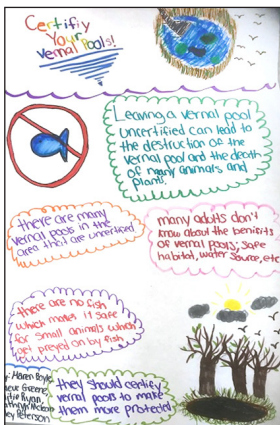 Certifiy
Your
vernal Pools!
Leaving a vernal pool
uncertified can lead to
the destruction of the
vernal pool and the death
of many animals and
plants.
there are many
vernal pools in the
area that are uncertified
many adults don't
know about the benifits
of vernal pools; safe
habitat, water source, etc
there are no fish
which makes it safe
for small animals which
get preyed on by fish
they should certify
vernal pools to make
them more protected
Karen
Greene,
Ryan,
Peterson